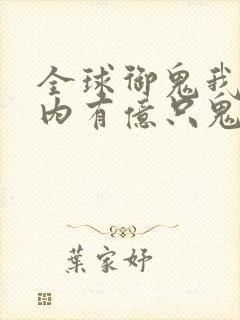 全球御鬼我
内有億只鬼
葉家妤